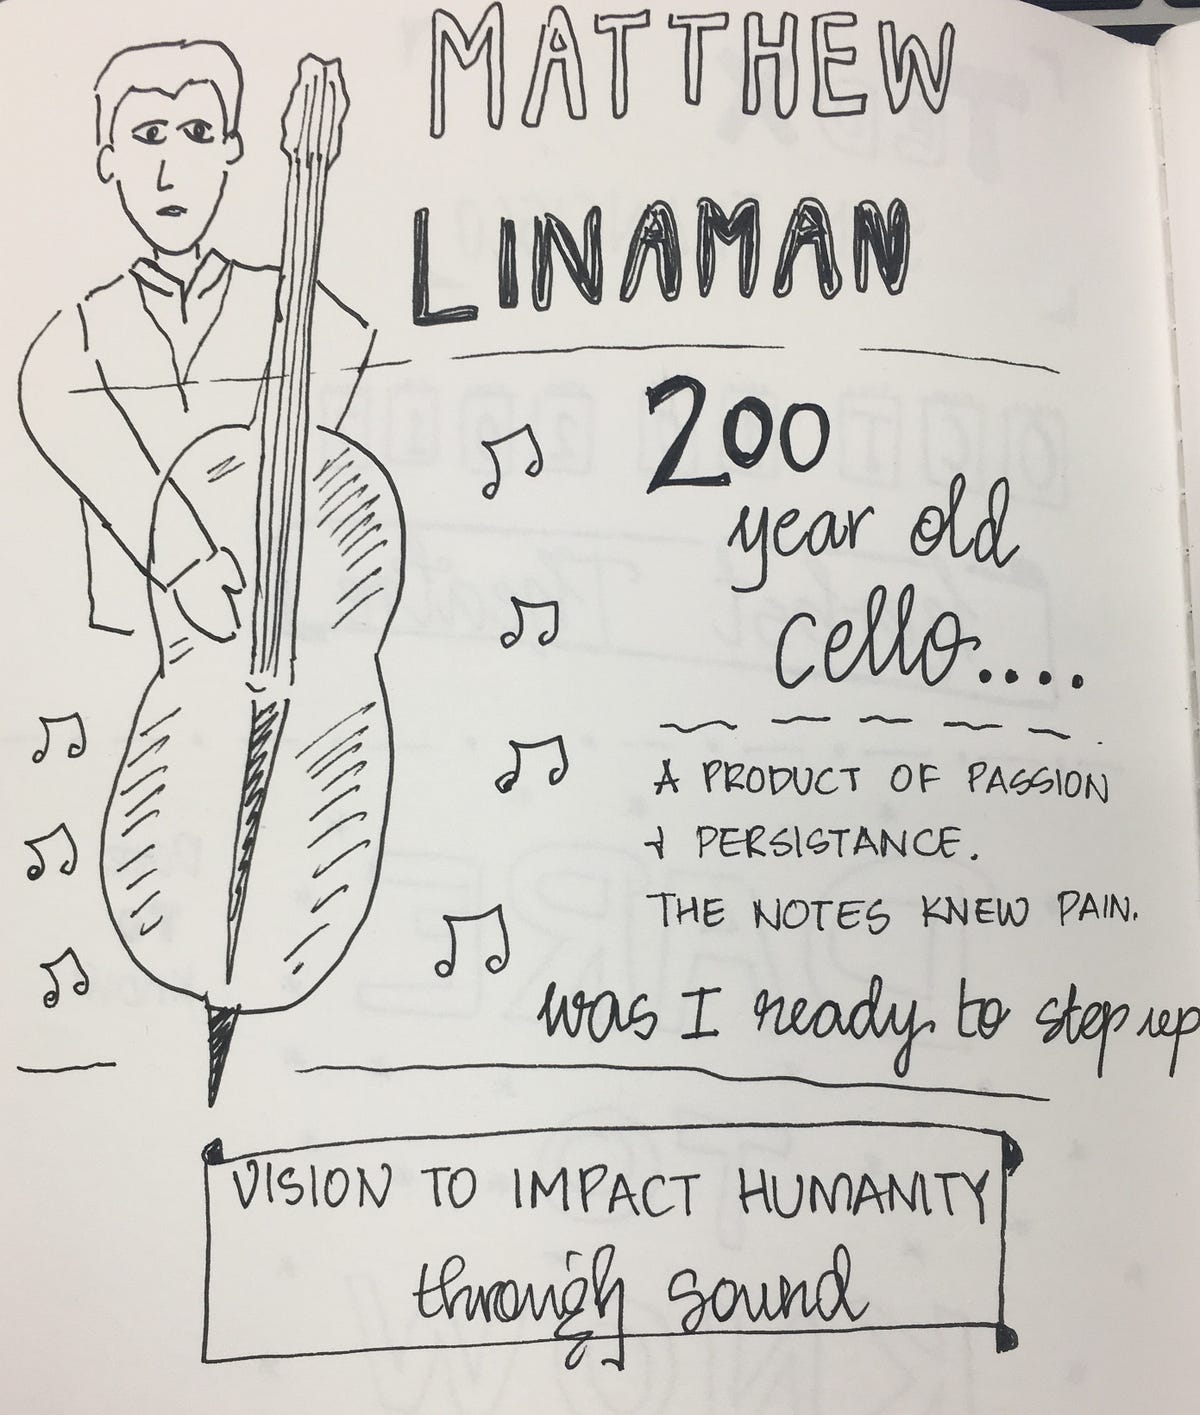 MATTHEW
LINAMAN
200
year old
cello....
A PRODUCT OF PASSION
& PERSISTANCE.
THE NOTES KNEW PAIN.
was I ready to step up
VISION TO IMPACT HUMANITY
through sound